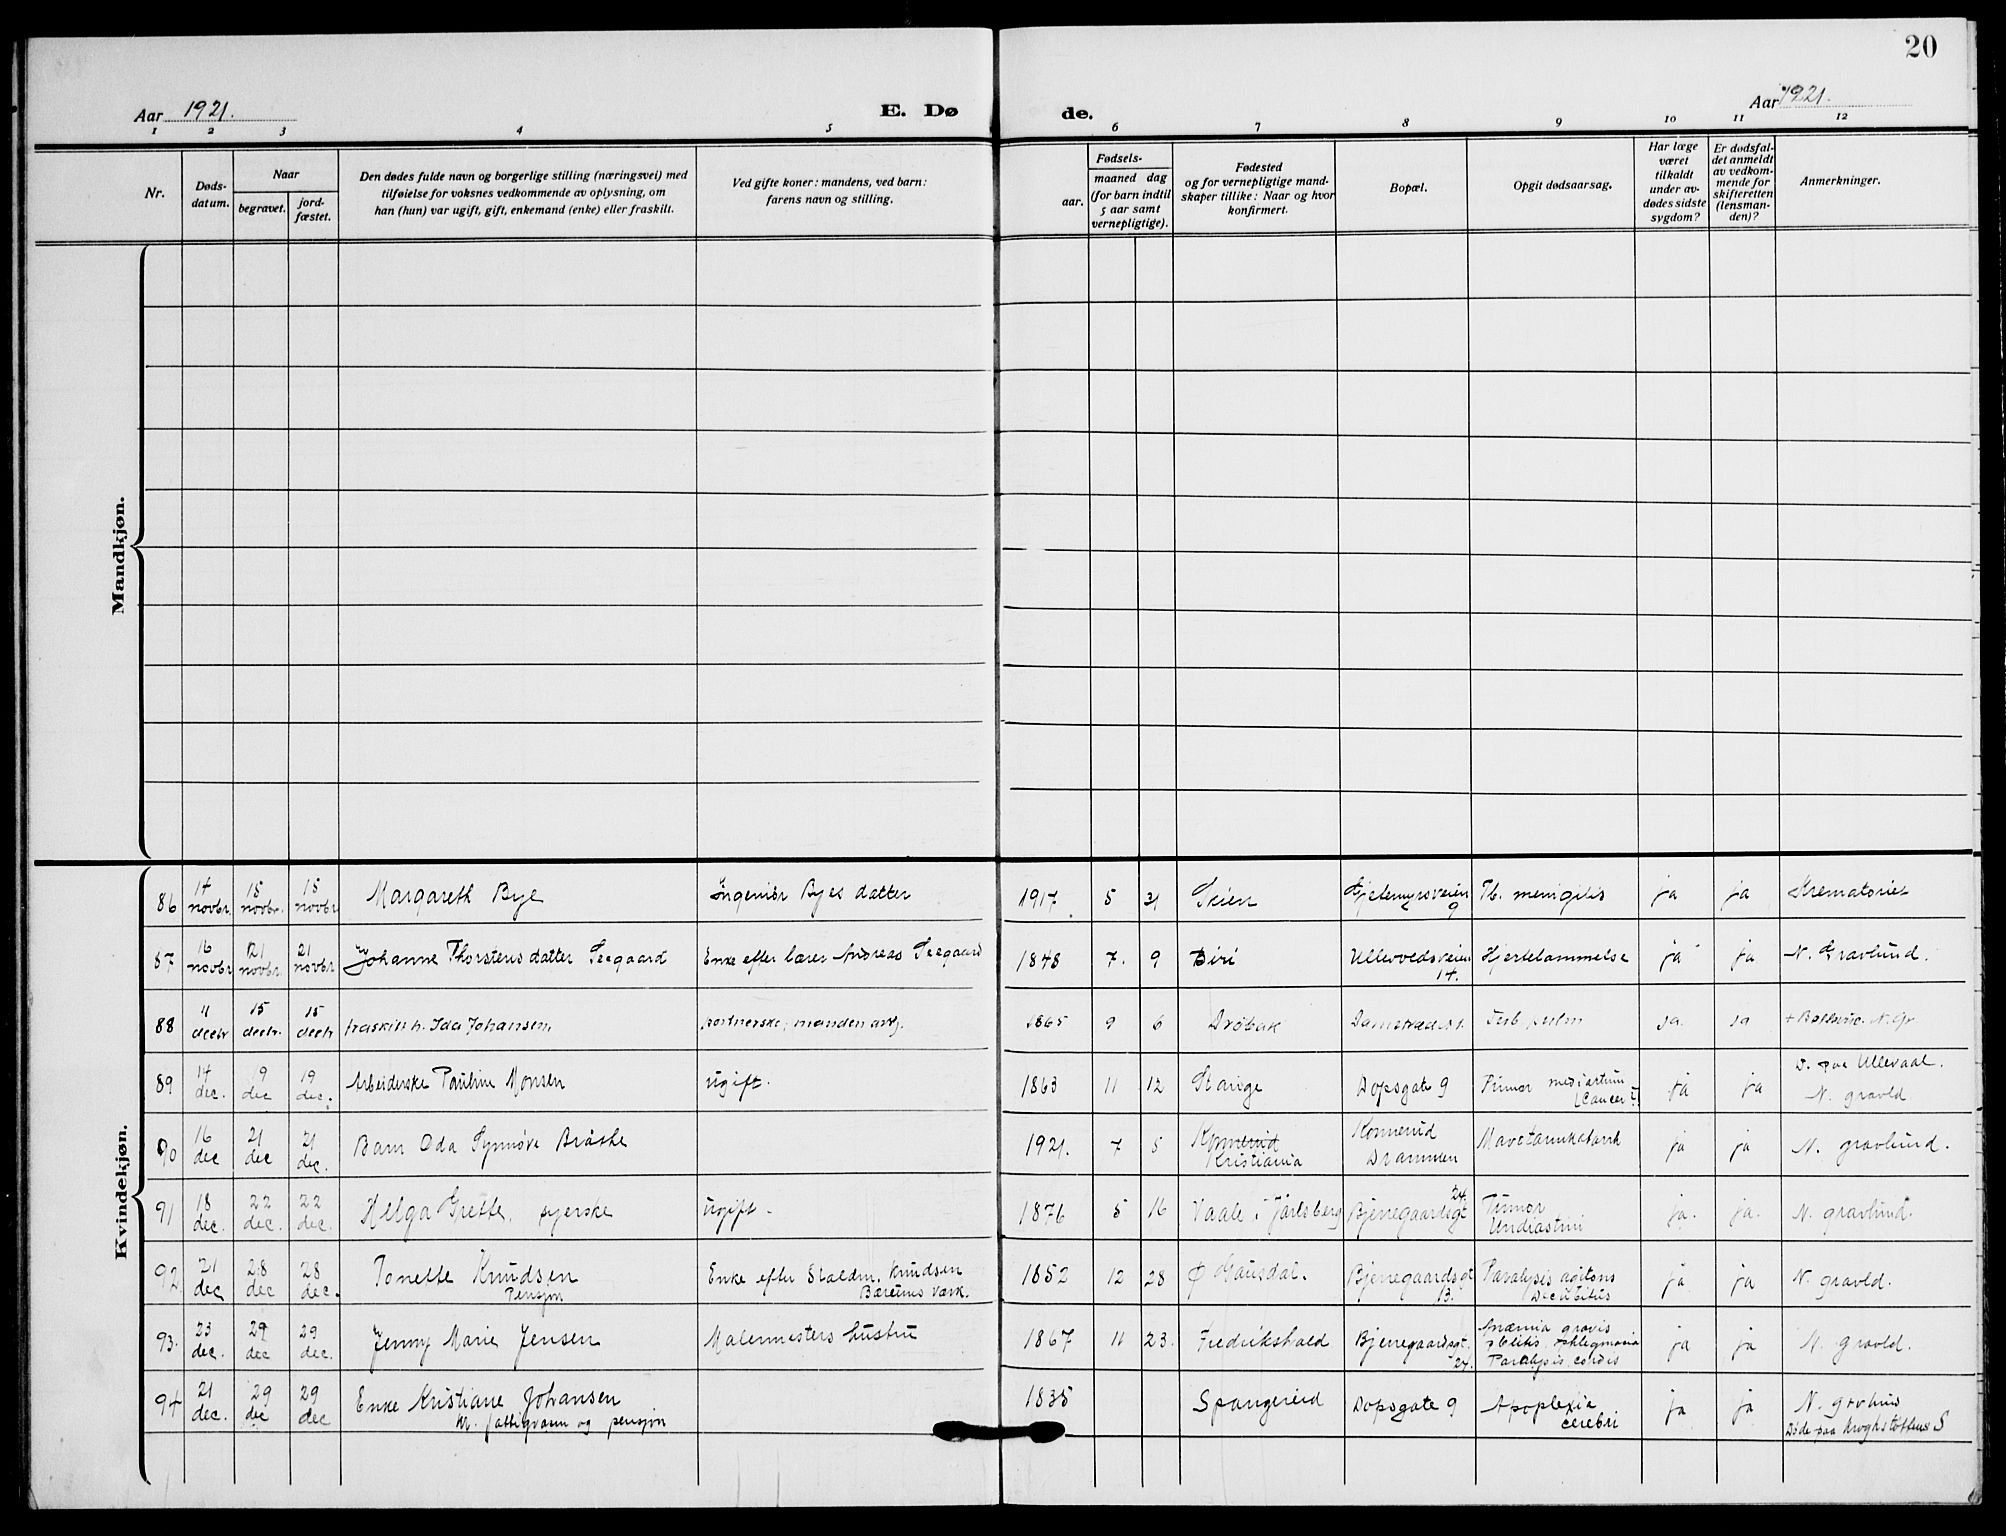 20
Aar 1921.
E. Dø
de.
Aar 1921.
1 2 3 4 5 6 7 8 9 10 11 12
Nr.
Døds-
datum.
Naar
begravet.
jord-
fæstet.
Den dødes fulde navn og borgerlige stilling (næringsvei) med
tilføielse for voksnes vedkommende av oplysning, om
han (hun) var ugift, gift, enkemand (enke) eller fraskilt.
Ved gifte koner: mandens, ved barn:
farens navn og stilling.
aar.
Fødsels-
maaned dag
(for barn indtil
5 aar samt
vernepligtige).
Fødested
og for vernepligtige mand-
skaper tillike: Naar og hvor
konfirmert.
Bopæl.
Opgit dødsaarsag.
Har læge
været
tilkaldt
under av-
dødes sidste
sygdom?
Er dødsfal-
det anmeldt
av vedkom-
mende for
skifteretten
(lensman-
den)?
Anmerkninger.
Mandkjøn.
Kvindekjøn.
86 14 novbr. 15 novbr. 15 novbr Margareth Bye Ingeniør Byes datter 1917. 5 21 Skien Gjetemyrsveien 9 Tb. menigitis ja ja Krematoriet
87 16 novbr 21 novbr. 21 novbr Johanne Thorstensdatter Seegaard Enke efter lærer Andreas Seegaard 1848 7. 9 Biri Ullevoldsveien 14. Hjertelammelse ja ja N. Gravlund.
88 11 decbr 15 decbr. 15 decbr fraskilt fr. Ida Johansen portnerske, manden 1865 9 6 Drøbak ja. ja N. Gr
89 14 dec. 19 dec 19 dec. Arbeiderske Pauline Monsen ugift. 1863 11 12 Stange Dopsgate 9 Tumor mediastium (Cancer?) ja ja D. paa Ullevaal.
N. gravld
90 16 dec 21 dec 21 dec. Barn Oda Synnøve Bråthe 1921. 7 5 Konnerud
Kristiania Konnerud
Drammen Mavetarmkatarrh ja ja N. gravlund.
91 18 dec. 22 dec. 22 dec. Helga Grette, syerske ugift. 1876 5 16 Vaale i Jarlsberg Bjerregaardsgt 24. Tumor ja. ja. N. gravlund.
92 21 dec 28 dec 28 dec. Tonette Knudsen
Pensjon Enke efter Staldm. Knudsen
Bærums Værk. 1852 12 28 Ø Gausdal. Bjerregaardsgt 13. Paralysis agitans
Decubitus ja ja N. gravld.
93. 23 dec. 29 dec 29 dec. Jenny Marie Jensen Malermesters hustru 1867 11 23. Fredrikshald Bjerregaardsgt. 24. Anæmia gravis
Paralysis cordis ja ja N. gravld.
94 21 dec. 29 dec 29 dec Enke Kristiane Johansen
M. fattigvæsen og pensjon 1835 Spangereid Dopsgate 9 Apoplexia
cerebri ja ja N. gravlund
Døde paa Kroghstøttens S